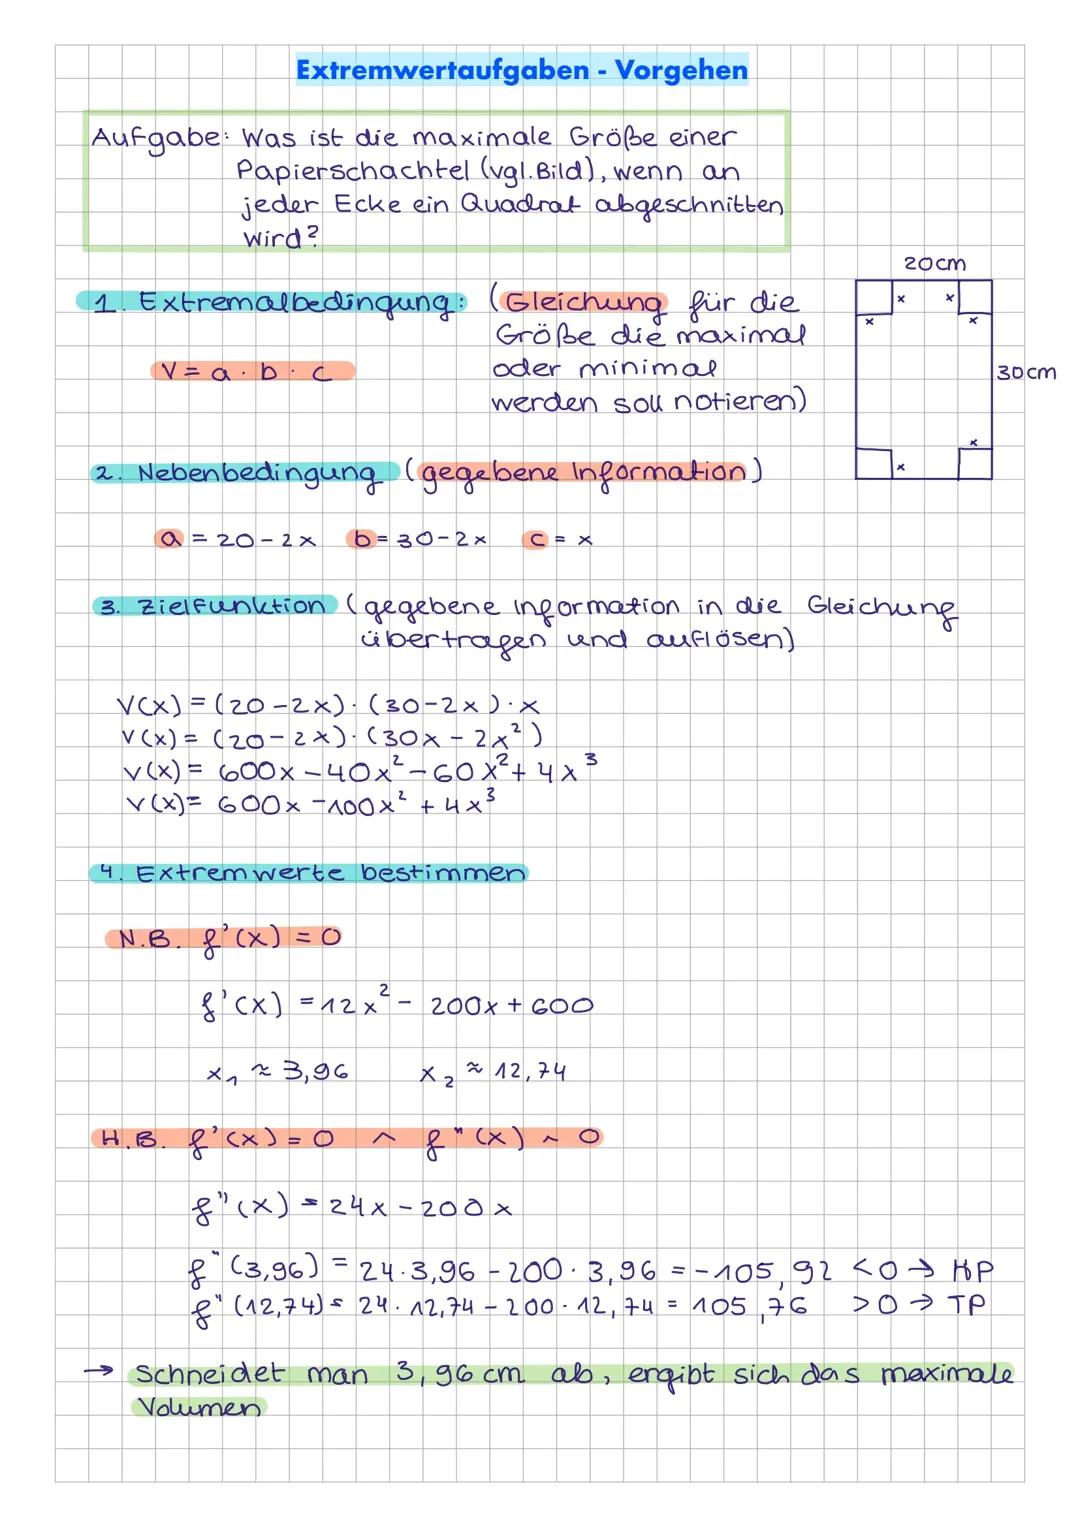 Extremwertaufgaben - Vorgehen
Aufgabe: Was ist die maximale Größe einer
Papierschachtel (vgl. Bild), wenn an
jeder Ecke ein Quadrat abgeschnitten
wird?
20cm
1. Extremalbedingung: (Gleichung für die
Größe die maximal
oder minimal
werden soll notieren)
V = a · b · c
x x
x x
30cm
x
x
2. Nebenbedingung (gegebene Information)
a = 20-2x b = 30-2x c = x
3. Zielfunktion (gegebene Information in die Gleichung
übertragen und auflösen)
V(x) = (20-2x) · (30-2x) · x
V(x) = (20-2x) · (30x - 2x²)
V(x) = 600x - 40x² - 60x² + 4x³
V(x) = 600x - 100x² + 4x³
4. Extremwerte bestimmen
N.B. f'(x) = 0
f'(x) = 12x² - 200x + 600
x₁ ≈ 3,96 x₂ ≈ 12,74
H.B. f'(x) = 0 ^ f"(x) ~ 0
f"(x) = 24x - 200x
f"(3,96) = 24·3,96 - 200·3,96 = -105,92 <0 → HP
f"(12,74) = 24·12,74 - 200·12,74 = 105,76 >0 → TP
→ Schneidet man 3,96cm ab, ergibt sich das maximale
Volumen